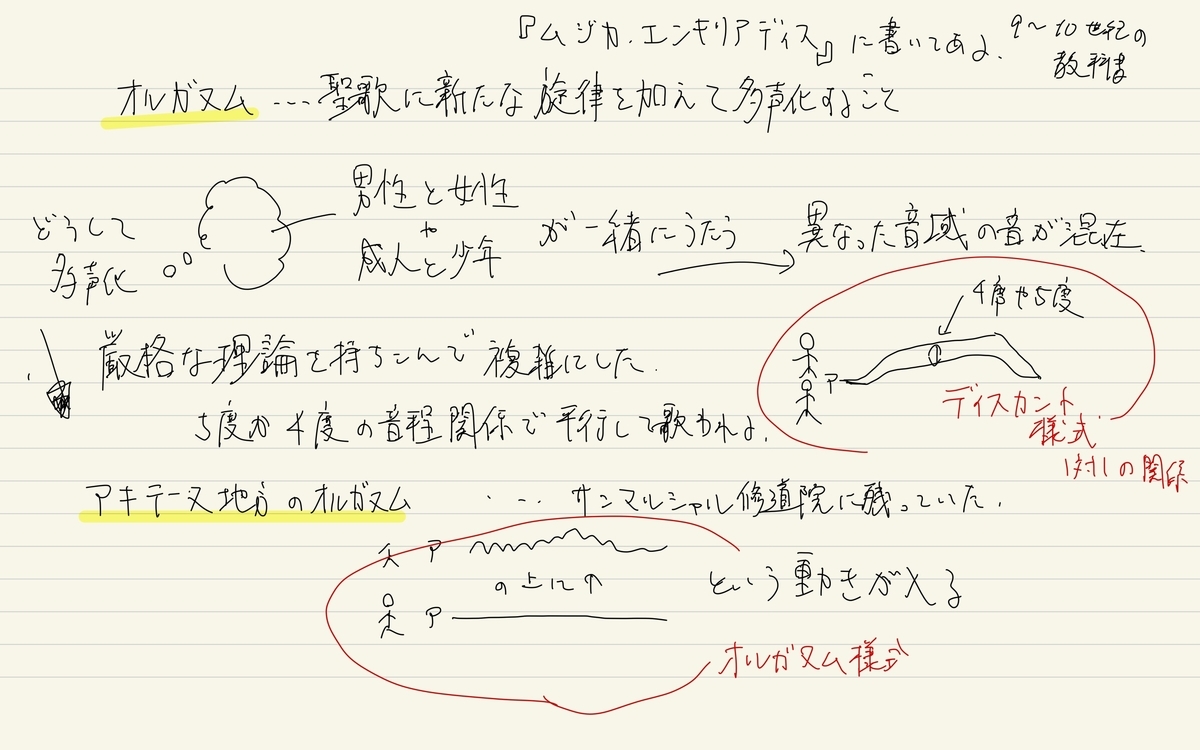 『ムジカ・エンキリアディス』に書いてある。9〜10世紀の
教科書
オルガヌム ・・・・聖歌に新たな旋律を加えて多声化すること
どうして
多声化
男性と女性
や
成人と少年
が一緒にうたう
異なった音域の音が混在。
4度や5度
厳格な理論を持ちこんで複雑にした。
ア
ディスカント
様式
1対1の関係
5度か4度の音程関係で平行して歌われる。
アキテーヌ地方のオルガヌム ・・・ サンマルシャル修道院に残っていた。
ア
の上にの
ア
という動きが入る
オルガヌム様式